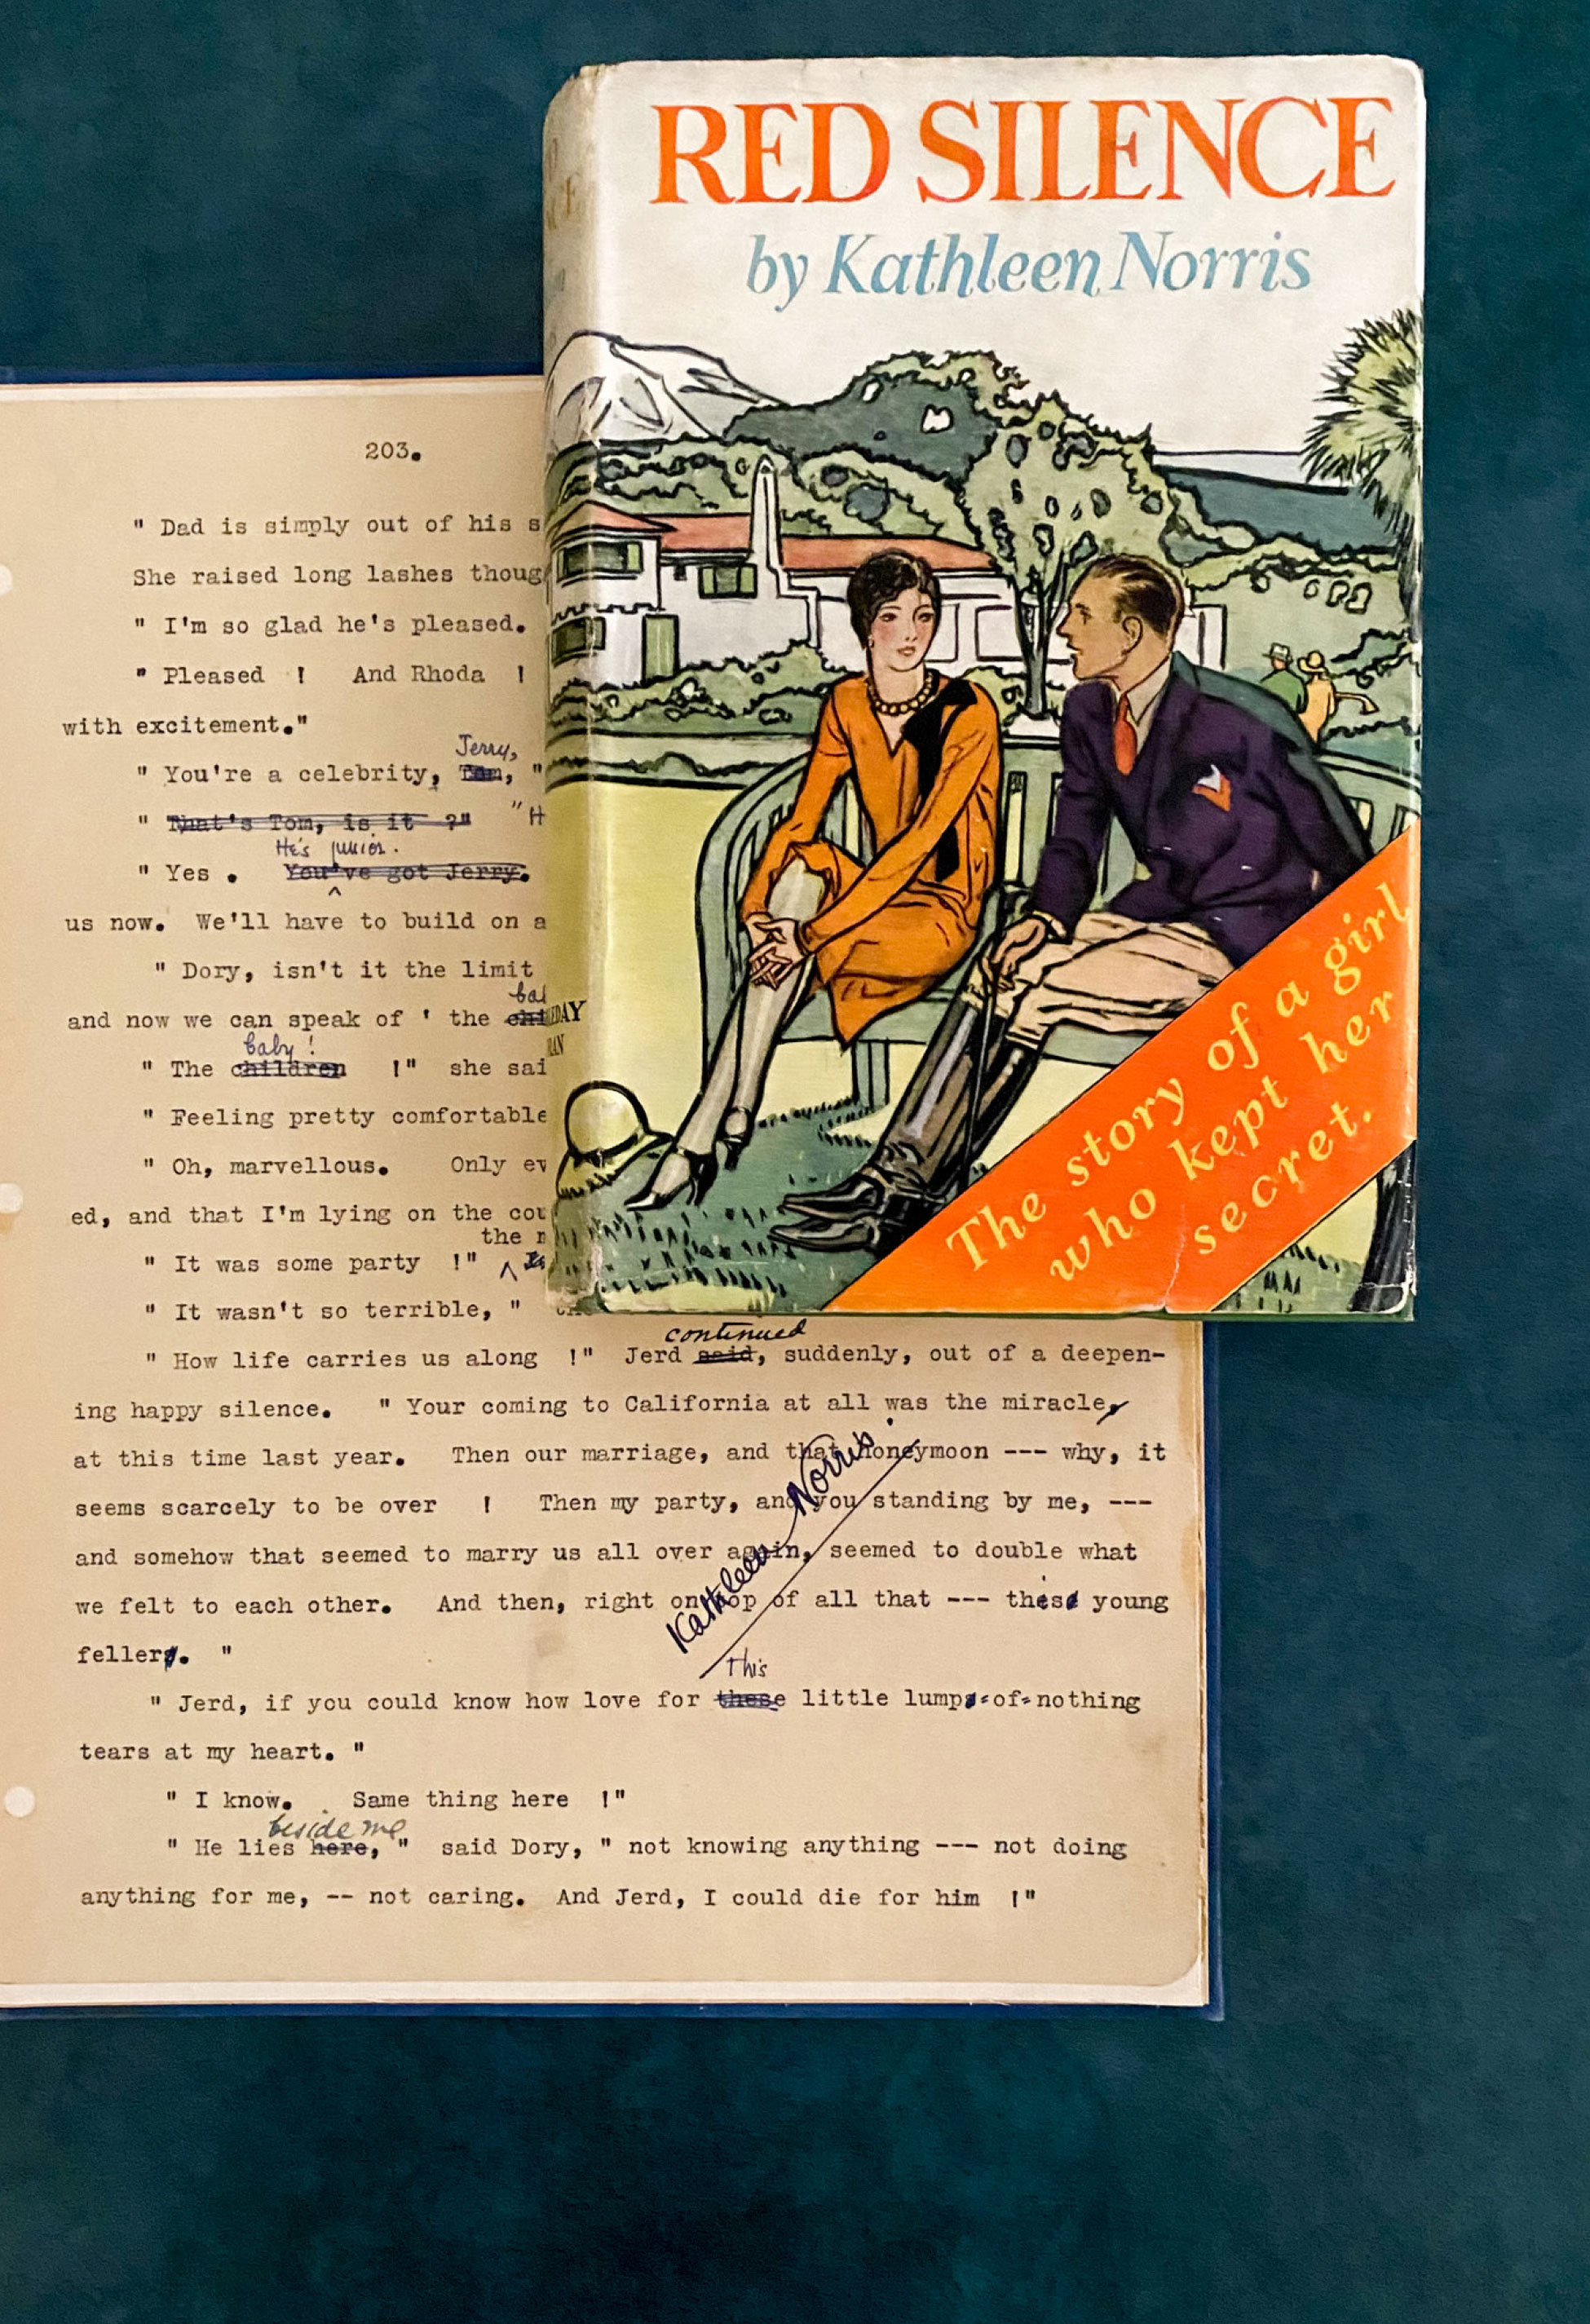 RED SILENCE
by Kathleen Norris
The story of a girl
who kept her
secret.
203.
" Dad is simply out of his
She raised long lashes
" I'm so glad he's pleased.
" Pleased ! And Rhoda !
with excitement."
Jerry,
" You're a celebrity, Tom, "
" That's Tom, is it ?" "
He's junior.
" Yes . You've got Jerry.
us now. We'll have to build on a
" Dory, isn't it the limit
and now we can speak of ' the
baby !
" The children !" she
" Feeling pretty comfortable
" Oh, marvellous. Only
ed, and that I'm lying on the
the
" It was some party !"
" It wasn't so terrible, "
continued
" How life carries us along !" Jerd said, suddenly, out of a deepen-
ing happy silence. " Your coming to California at all was the miracle,
at this time last year. Then our marriage, and that honeymoon --- why, it
seems scarcely to be over ! Then my party, and you standing by me, ---
and somehow that seemed to marry us all over again, seemed to double what
we felt to each other. And then, right on top of all that --- this young
feller. "
Kathleen Norris
This
" Jerd, if you could know how love for these little lump-of-nothing
tears at my heart. "
" I know. Same thing here !"
beside me
" He lies here, " said Dory, " not knowing anything --- not doing
anything for me, -- not caring. And Jerd, I could die for him !"